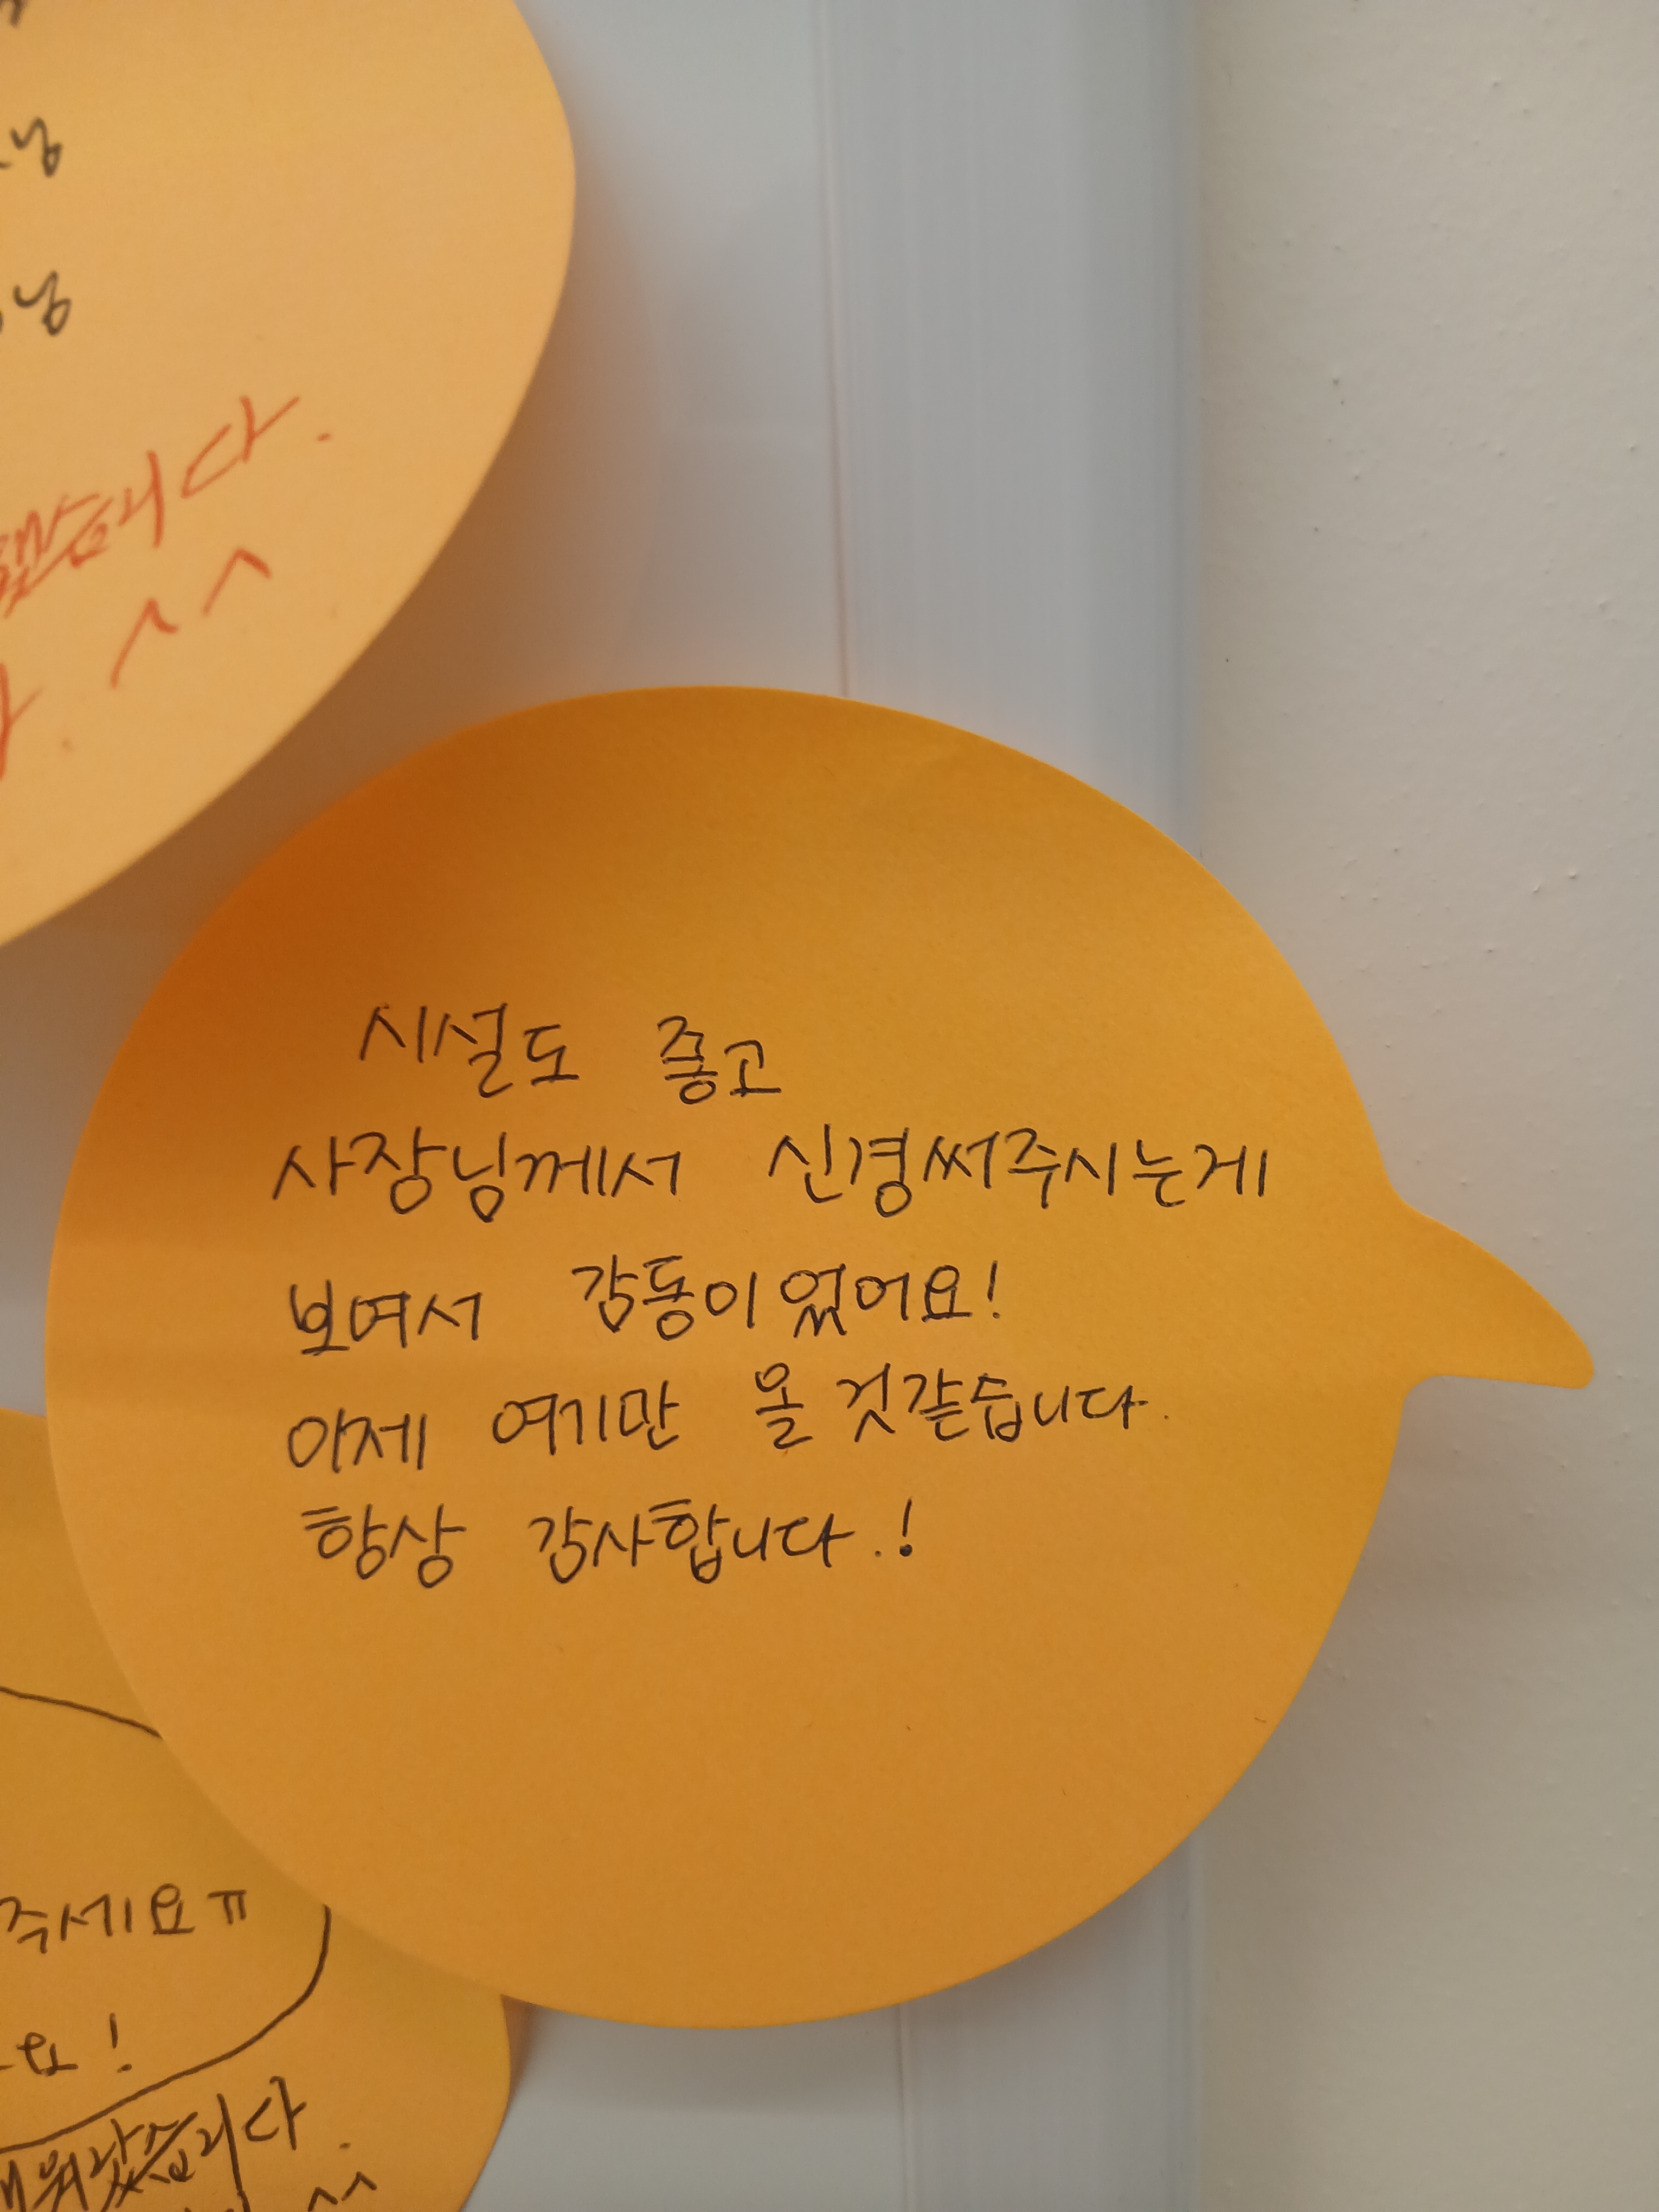 시설도 좋고
사장님께서 신경써주시는게
보여서 감동이었어요!
이제 여기만 올 것같습니다.
항상 감사합니다.!
주세요ㅠ
요!
^^
^^